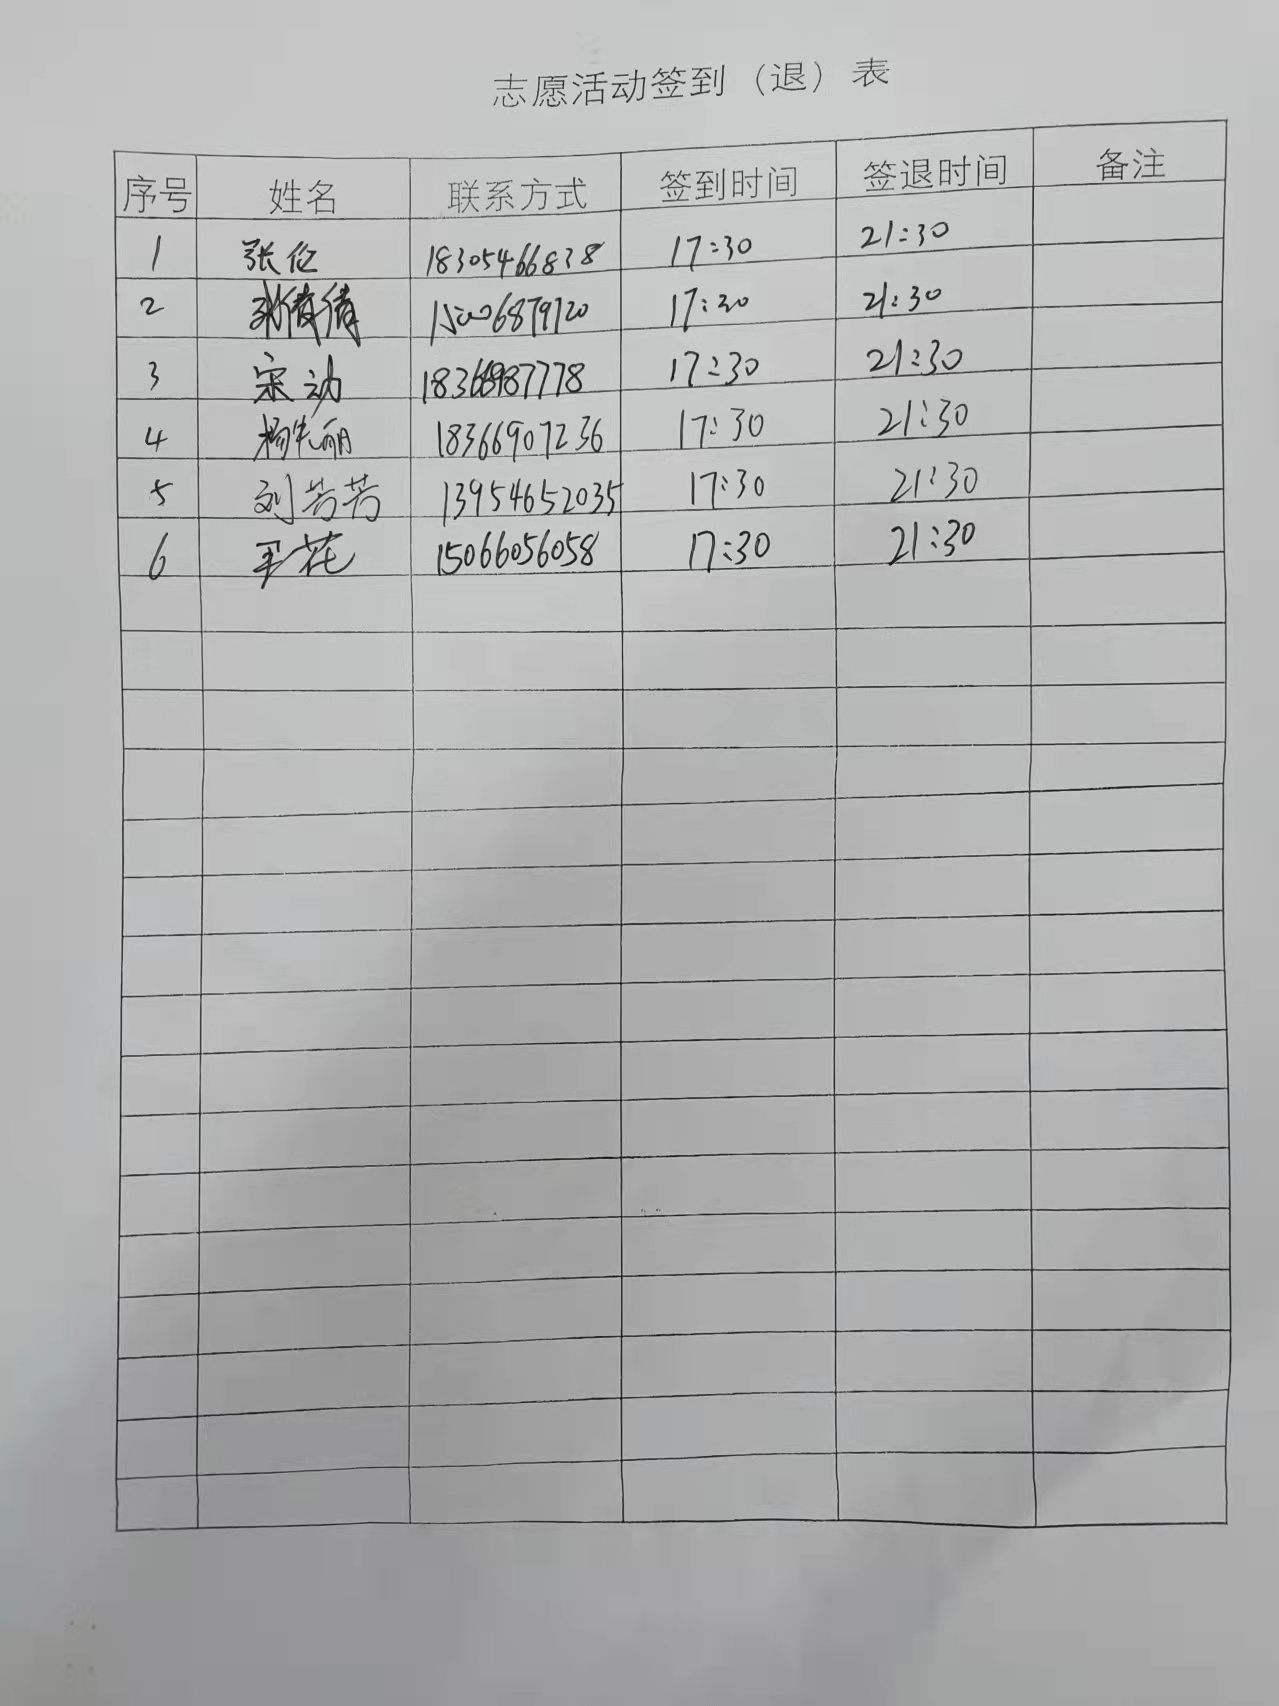 志愿活动签到（退）表
序号 姓名 联系方式 签到时间 签退时间 备注
1 张伦 18305466838 17:30 21:30
2 倩倩 15006879120 17:30 21:30
3 宋动 18366987778 17:30 21:30
4 杨先丽 18366907236 17:30 21:30
5 刘芳芳 13954652035 17:30 21:30
6 花 15066056058 17:30 21:30